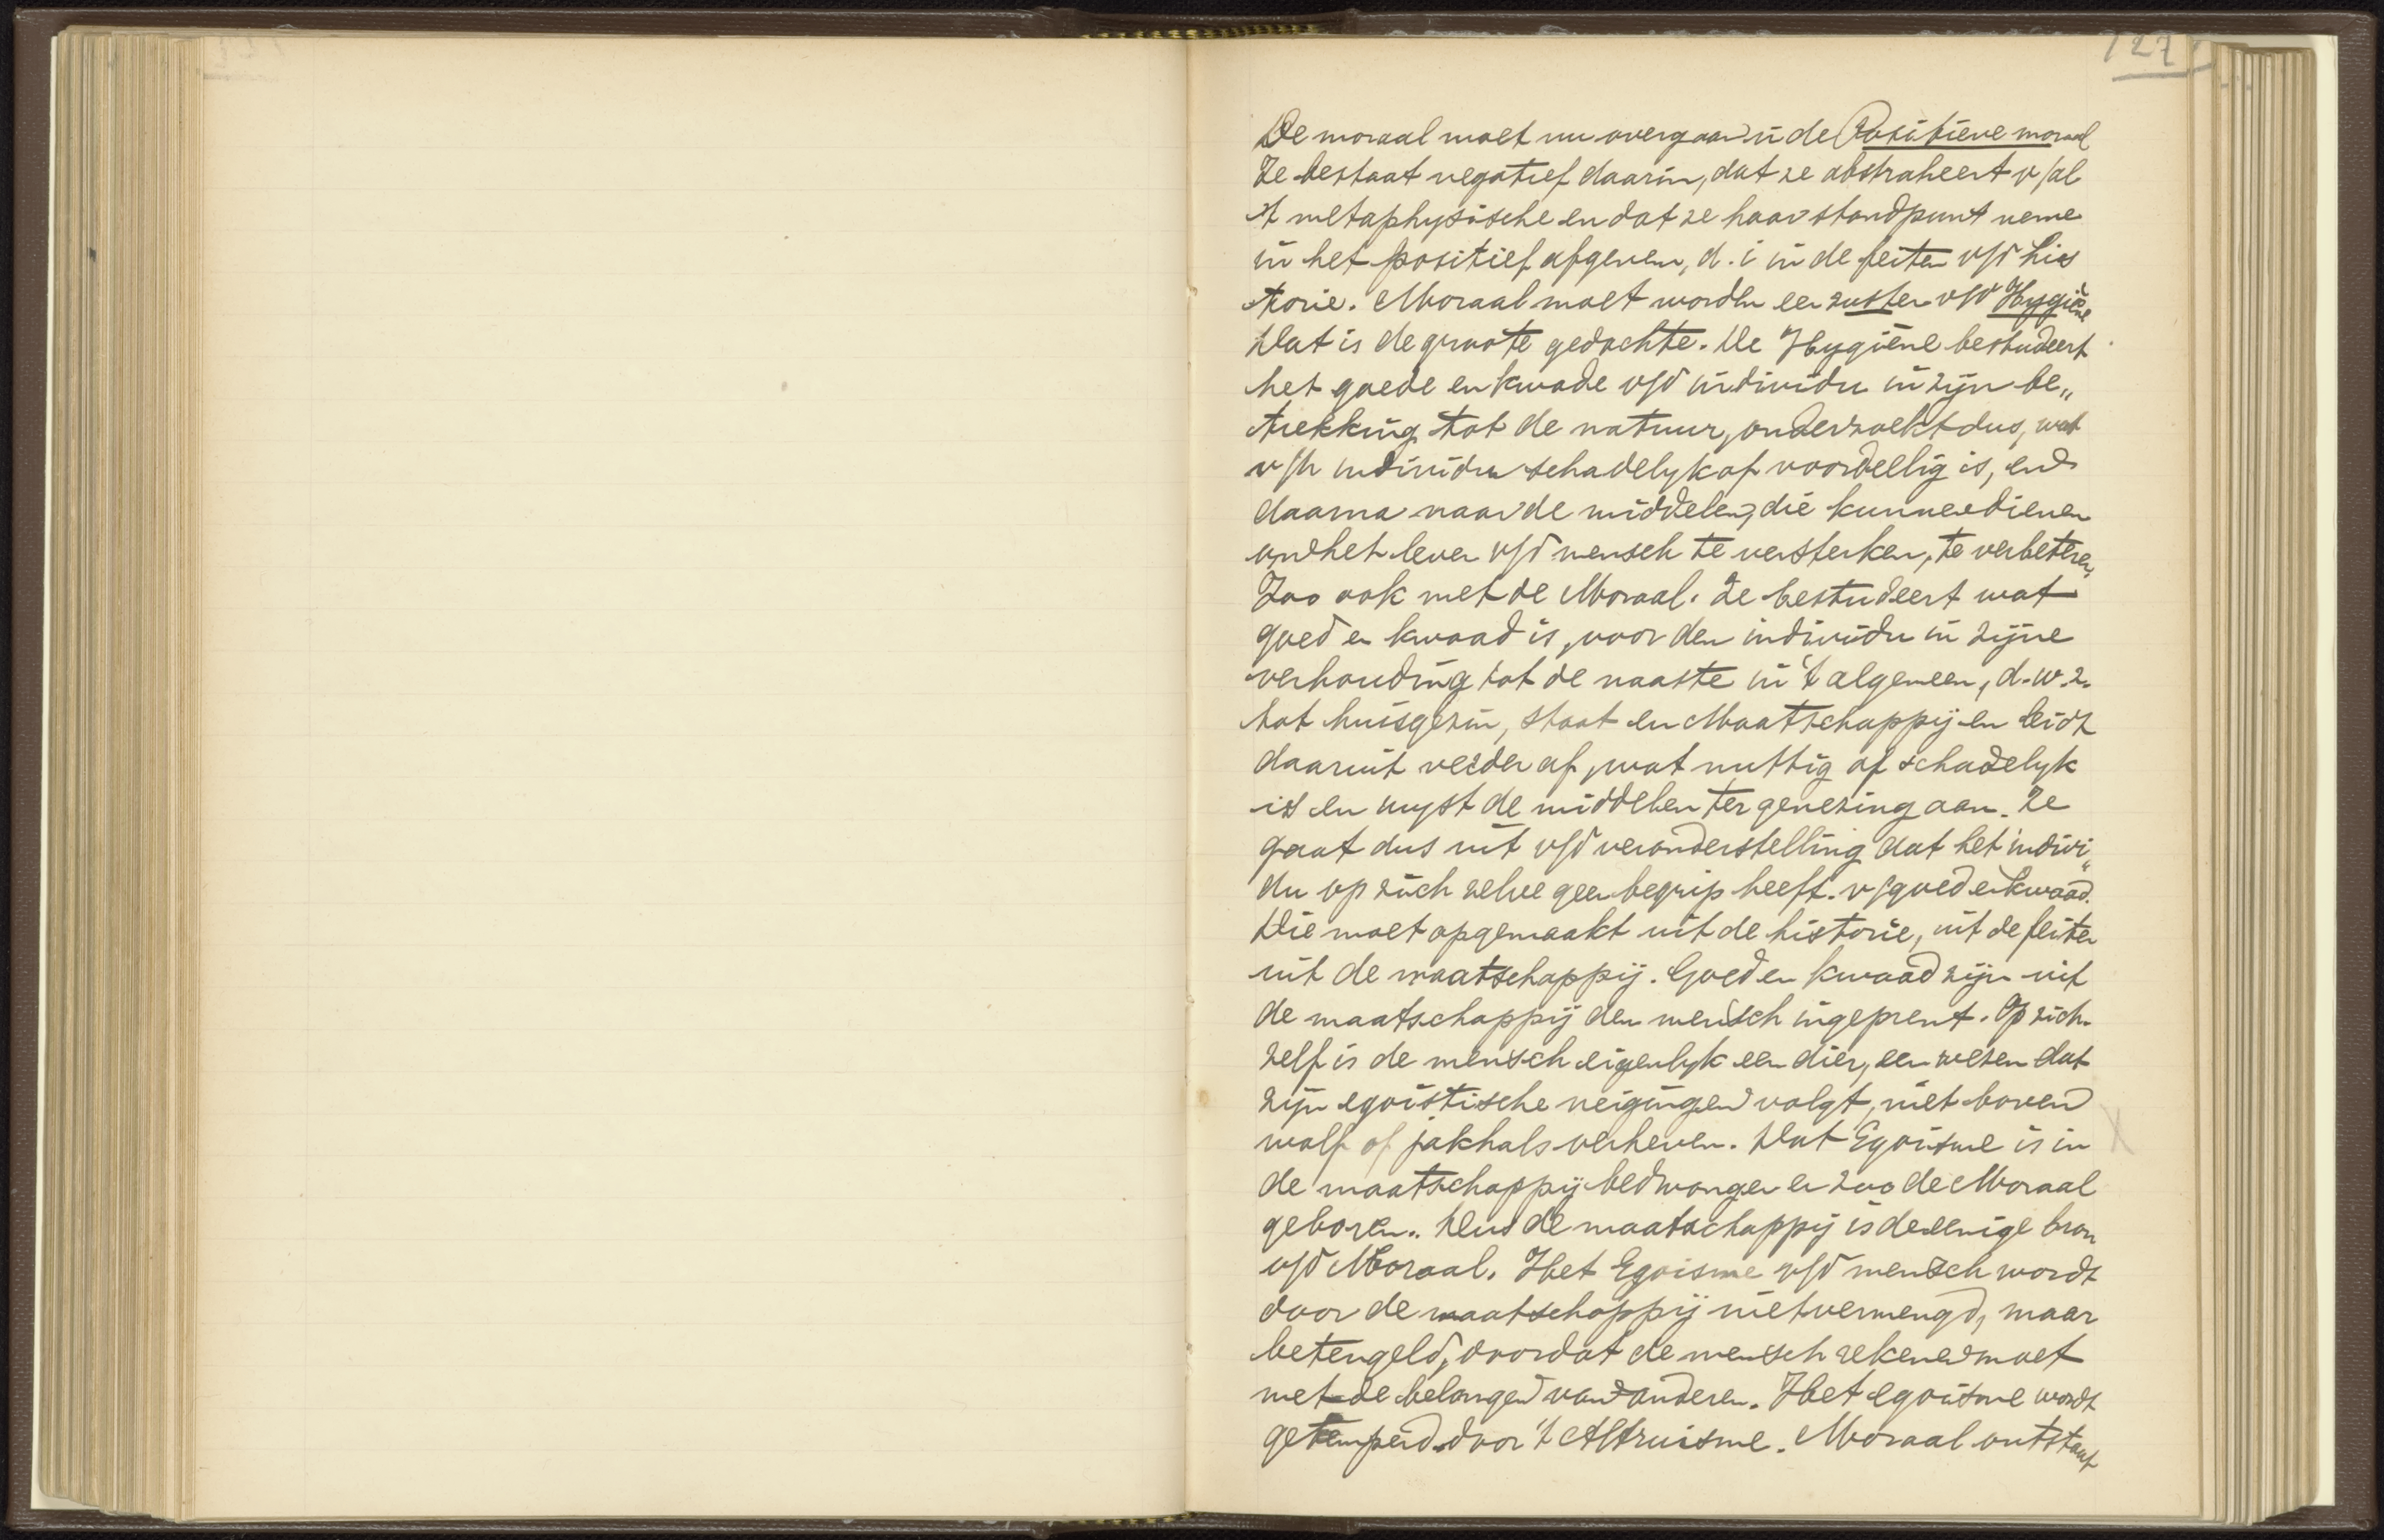 127
De moraal moet nu overgaan in de Positieve moraal
Ze bestaat negatief daarin, dat ze abstraheert v/al
't metaphysische en dat ze haar standpunt neme
in het positief afgeven, d. i in de feiten v/d his
torie. Moraal moet worden een zuster v/d Hygiëne
Dat is de groote gedachte. De Hygiëne bestudeert
het goede en kwade v/d individu in zijn be„
trekking tot de natuur, onderzoekt dus, wat
v/h individu schadelyk of voordeelig is, en
daarna naar de middelen, die kunnen dienen
om het leven v/d mensch te versterken, te verbeteren,
Zoo ook met de Moraal. Ze bestudeert wat
goed en kwaad is, voor den individu in zijne
verhouding tot de naaste in 't algemeen, d.w.z.
tot huisgezin, staat en Maatschappij en leidt
daaruit verder af, wat nuttig of schadelyk
is en wyst de middelen ter genezing aan. Ze
gaat dus uit v/d veronderstelling dat het indivi„
du op zich zelve geen begrip heeft v/goed en kwaad.
Die moet opgemaakt uit de historie, uit de feiten
uit de maatschappij. Goed en kwaad zijn uit
de maatschappij den mensch ingeprent. Op zich-
zelf is de mensch eigenlyk een dier, een wezen dat
zijn egoïstische neigingen volgt, niet boven
wolf of jakhals verheven. Dat Egoisme is in
de maatschappij bedwongen en zoo de Moraal
geboren. Dus de maatschappij is de eenige bron
v/d Moraal. Het Egoisme v/d mensch wordt
door de maatschappij niet vermengd, maar
beteugeld, doordat de mensch rekenen moet
met de belangen van anderen. Het egoisme wordt
getemperd door 't Altruisme. Moraal ontstaat